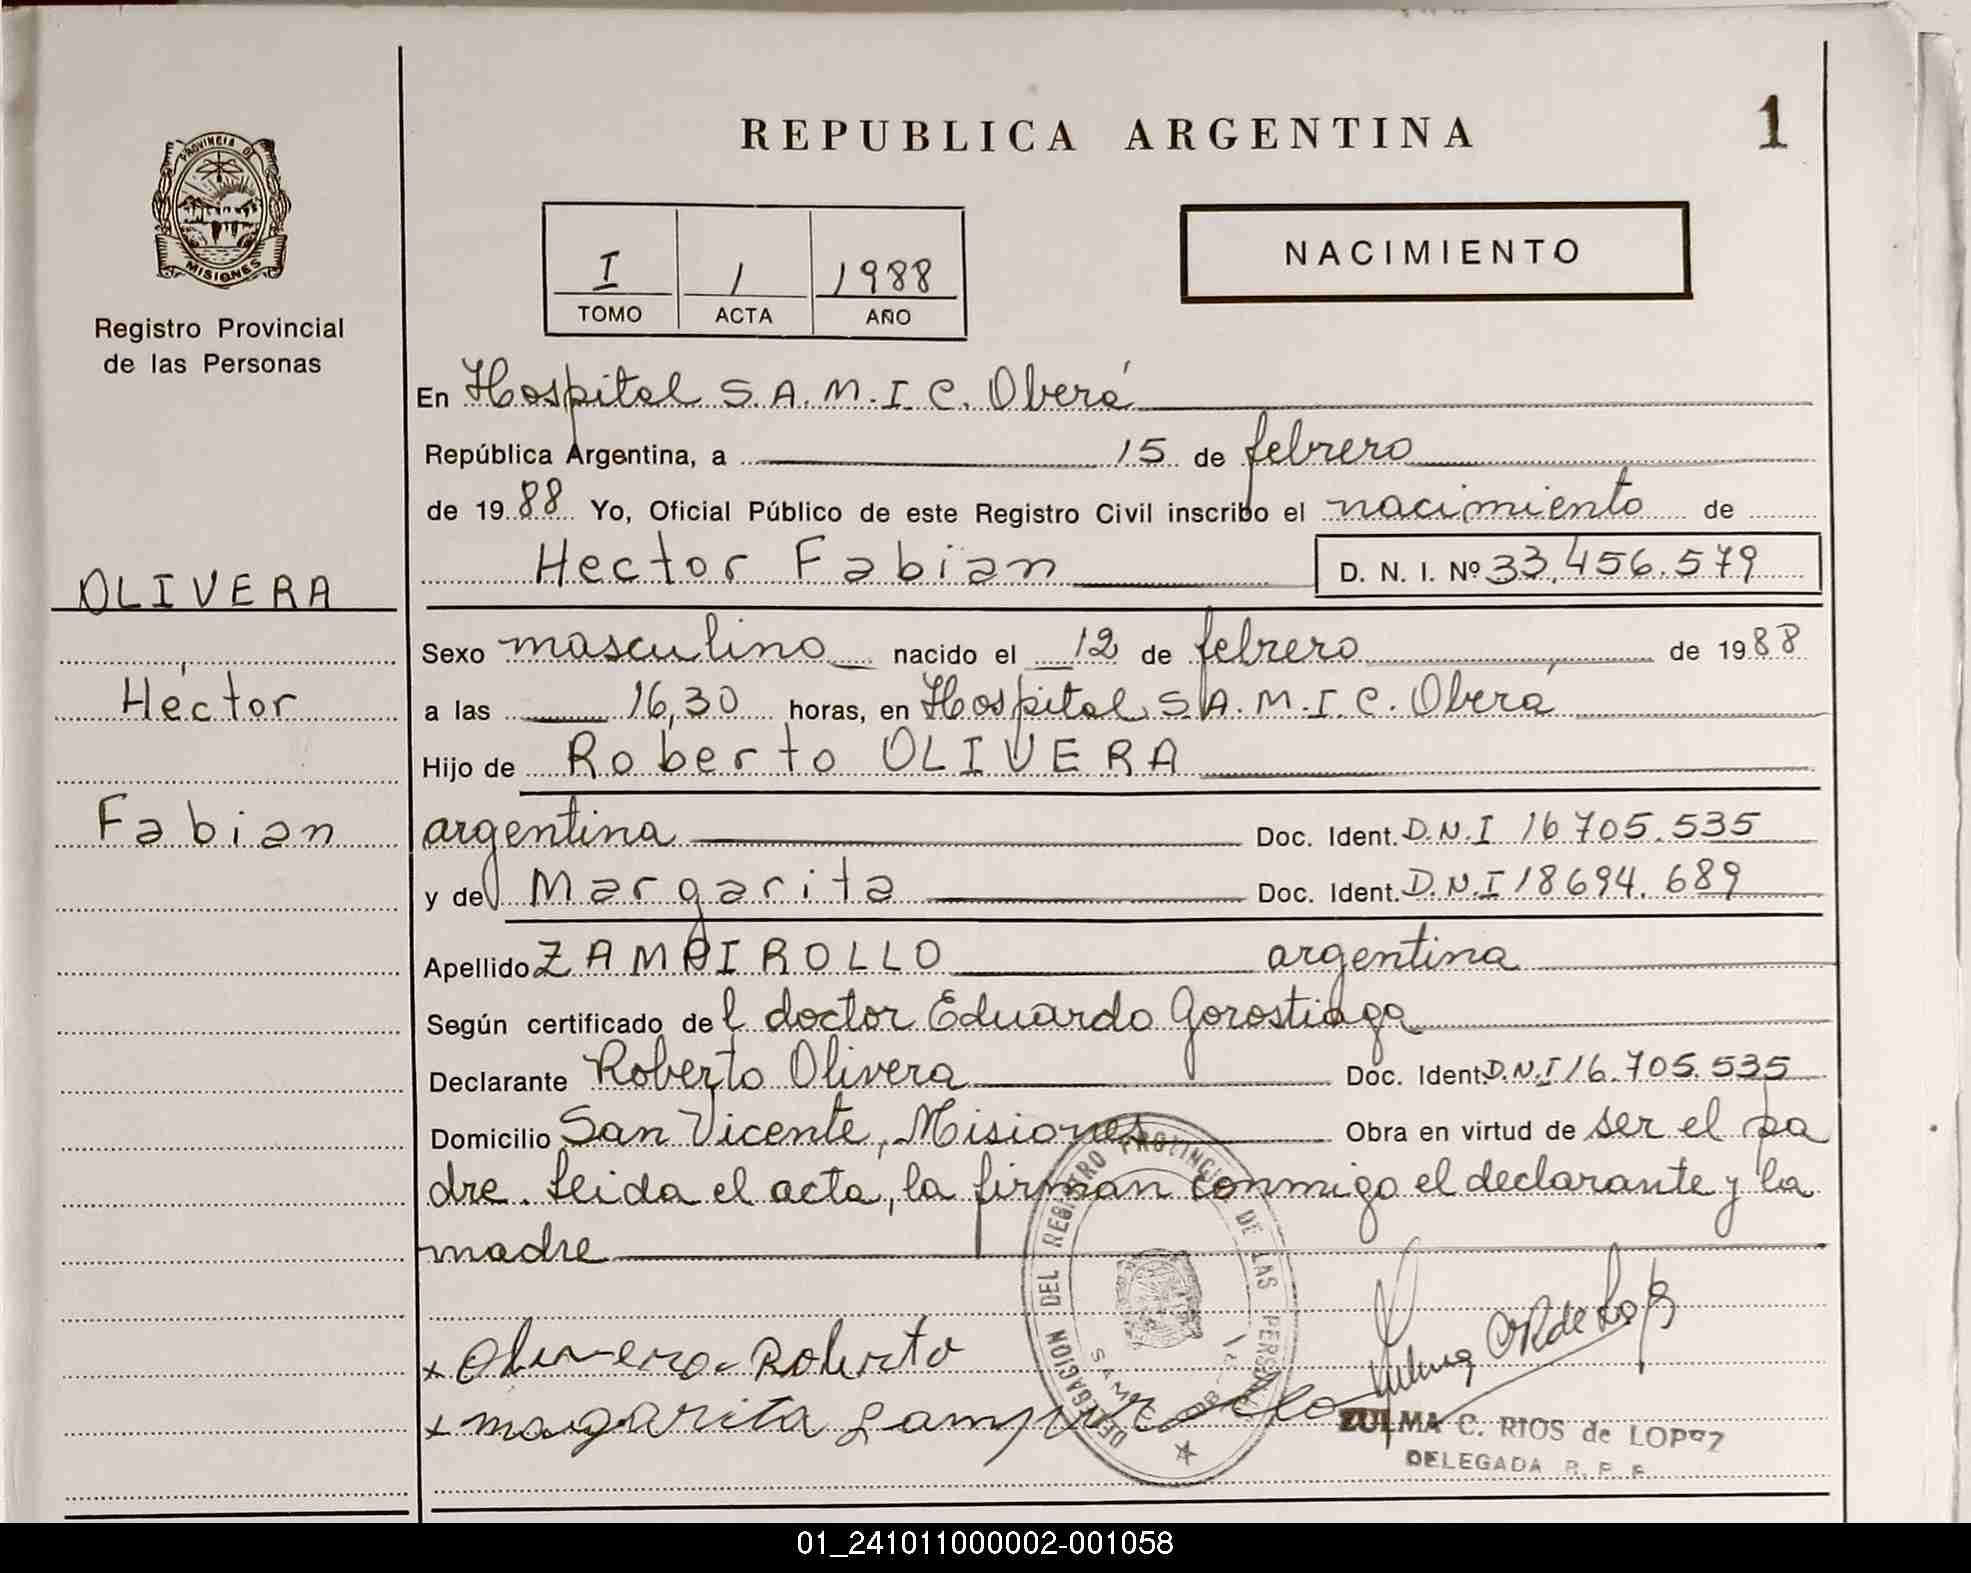 REPUBLICA ARGENTINA
1
PROVINCIA D
MISIONES
Registro Provincial
de las Personas
I 1 1988
TOMO ACTA AÑO
NACIMIENTO
En Hospital S.A.M.I.C. Oberá
República Argentina, a 15 de febrero
de 1988 Yo, Oficial Público de este Registro Civil inscribo el nacimiento de
Hector Fabian D. N. I. Nº 33.456.579
OLIVERA
Héctor
Fabian
Sexo masculino nacido el 12 de febrero de 1988
a las 16,30 horas, en Hospital S.A.M.I.C. Oberá
Hijo de Roberto OLIVERA
argentina Doc. Ident. D.N.I 16705.535
y de Margarita Doc. Ident. D.N.I 18694.689
Apellido ZAMPIROLLO argentina
Según certificado del doctor Eduardo Gorostiaga
Declarante Roberto Olivera Doc. Ident. D.N.I 16.705.535
Domicilio San Vicente, Misiones Obra en virtud de ser el pa
dre. Leida el acta, la firman conmigo el declarante y la
madre
DELEGACION DEL REGISTRO PROVINCIAL DE LAS PERSONAS
x Olivera Roberto
x margarita
ZULMA C. RIOS de LOPEZ
DELEGADA R. P. P.
01_241011000002-001058